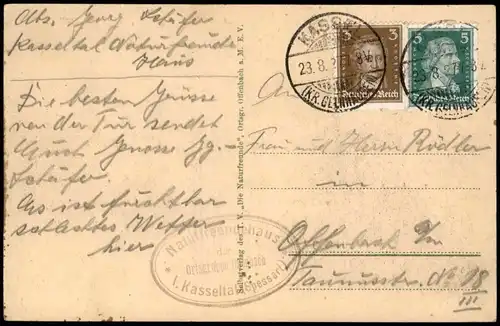 Abs. Georg Schäfer
Kasseltal Naturfreunde
Haus
Die besten Grüsse
von der Tur sendet
Euch Genosse Gg.
Schäfer
Es ist furchtbar
schlechtes Wetter
hier
Naturfreundehaus
der
i. Kasseltal (Spessart)
Selbstverlag des T. V. „Die Naturfreunde", Ortsgr. Offenbach a. M. E. V.
KASSEL
23.8.
(KR. GELNHAUSEN)
3
3
Deutsches Reich
5
5
Deutsches Reich
An
Frau und Herrn Rödler
in
Offenbach a/m
Taunusstr. No 18
III